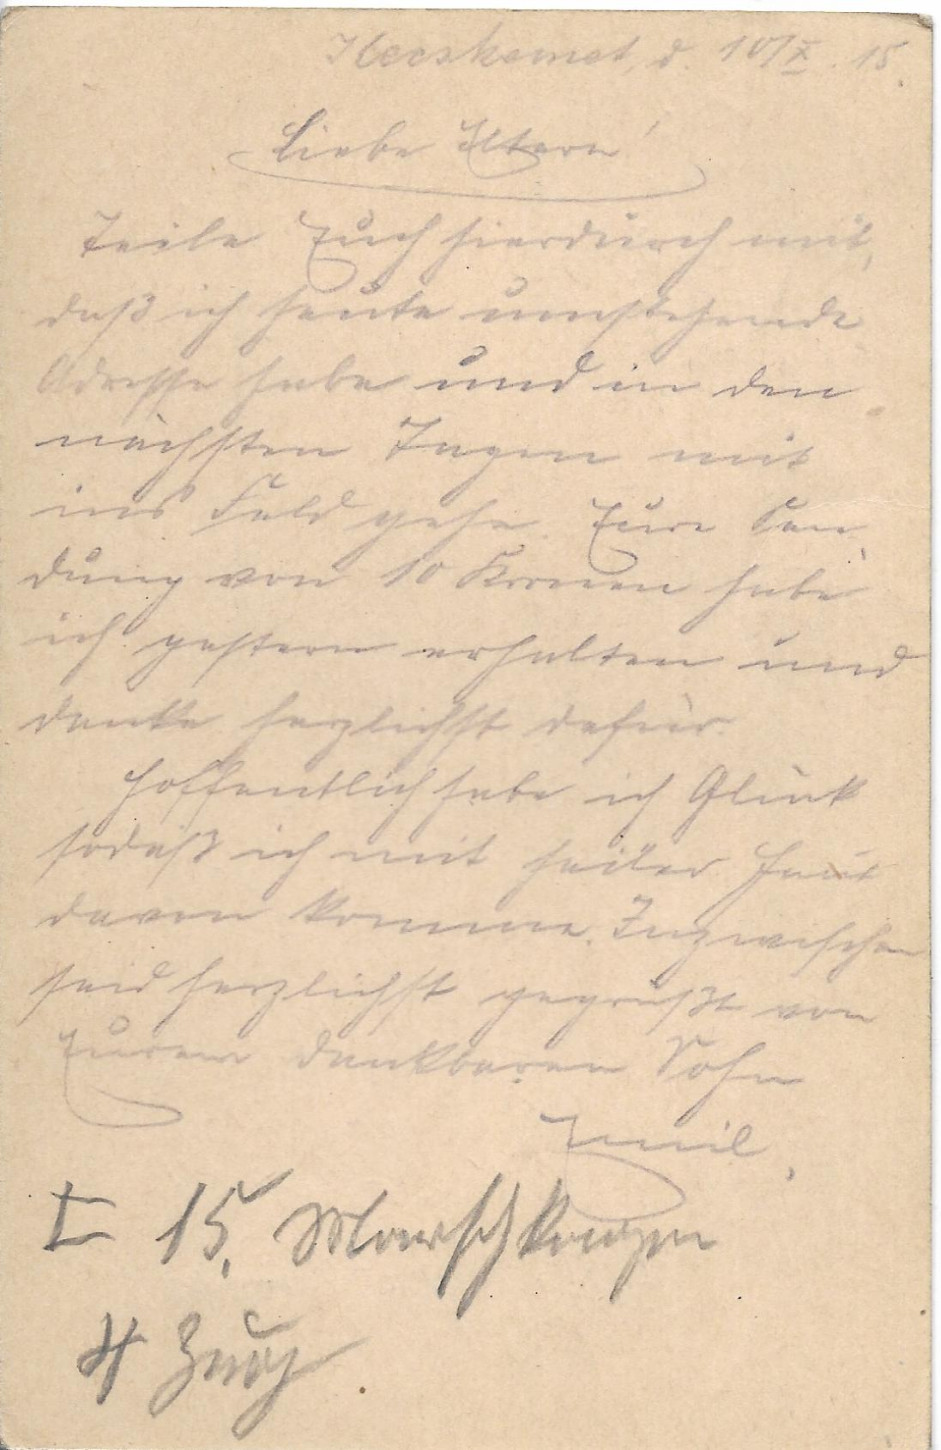 Kecskemet, d. 10/X. 15.
Liebe Eltern!
Teile Euch hierdurch mit,
daß ich heute umstehende
Adresse habe und in den
nächsten Tagen mit
ins Feld gehe. Eure Sen-
dung von 10 Kronen habe
ich gestern erhalten und
danke herzlichst dafür.
Hoffentlich habe ich Glück
sodaß ich mit heiler Haut
davon komme. Inzwischen
seid herzlichst gegrüßt von
Eurem dankbaren Sohn
Emil.
I 15. Marschkomp
4 Zug